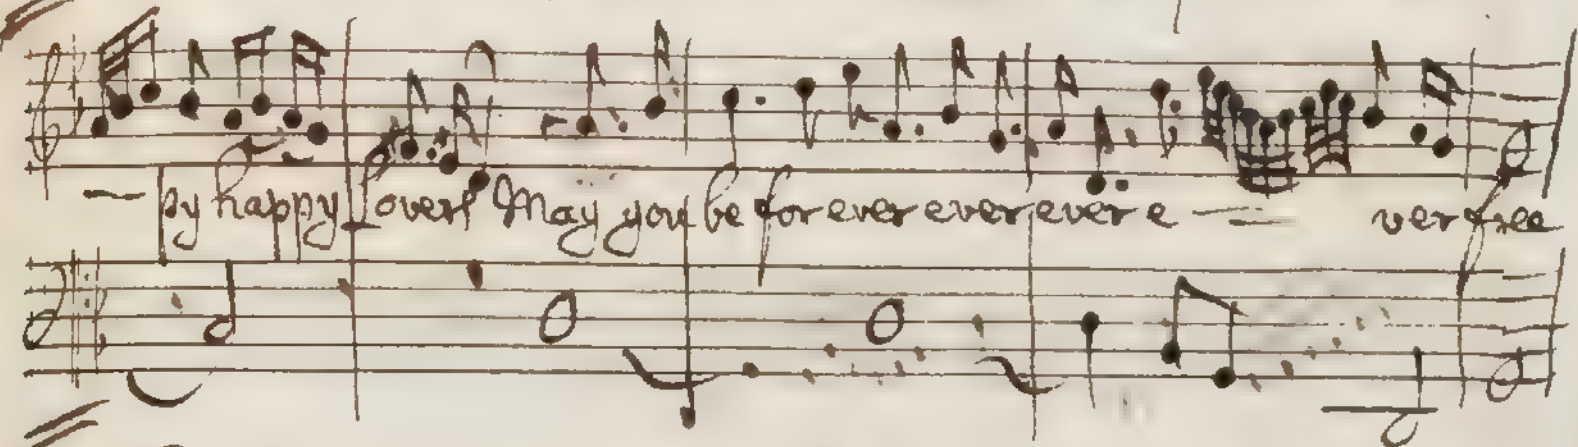 — py happy lovers May you be for ever ever ever e — — ver free